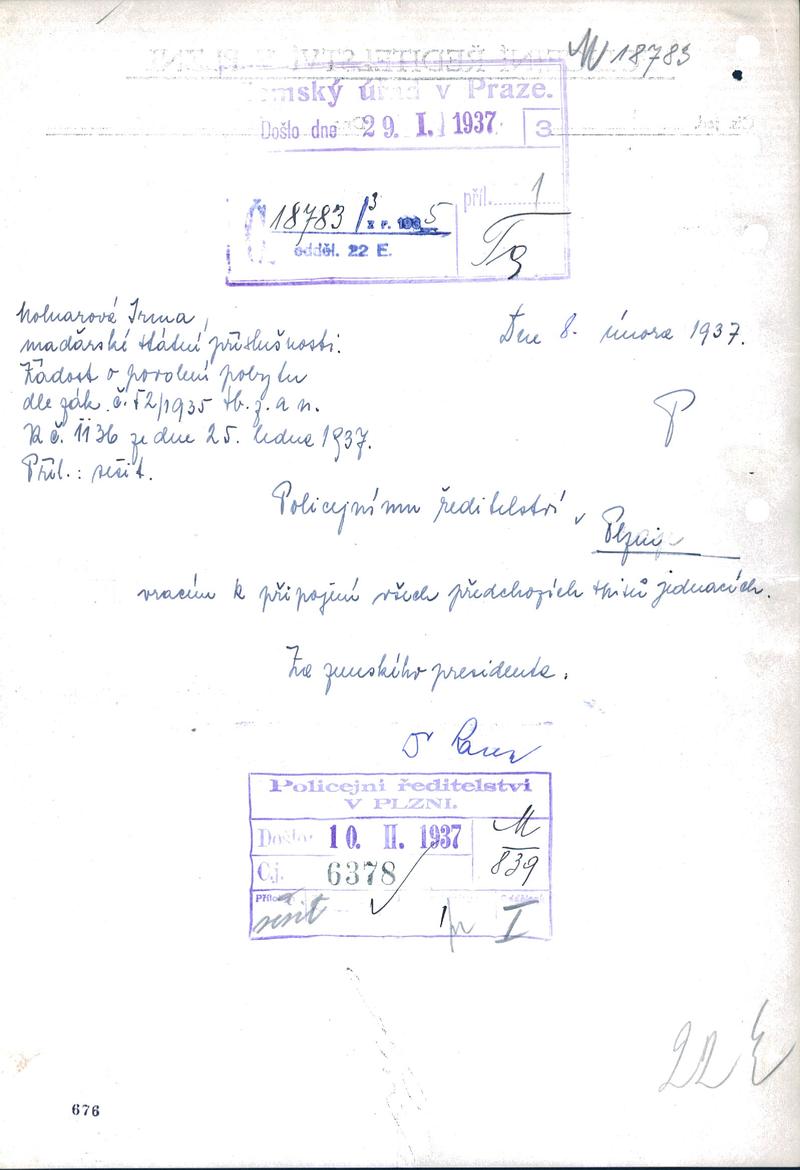 M 18783
Zemský úřad v Praze.
Došlo dne 29. I. 1937
3
příl. 1
Č. 18783/3 z r. 1935
odděl. 22 E.
Molnarová Irma,
maďarské státní příslušnosti.
Dne 8. února 1937.
Žádost o povolení pobytu
dle zák. č. 52/1935 sb. z. a n.
K č. 1136 ze dne 25. ledna 1937.
P
Příl.: sešit.
Policejnímu ředitelství v
Plzni
vracím k připojení všech předchozích spisů jednacích.
Za zemského presidenta.
Dr
Policejní ředitelství
V PLZNI.
Došlo: 10. II. 1937
M
839
Č.j. 6378
Přílohy
sešit
I
22 E
676